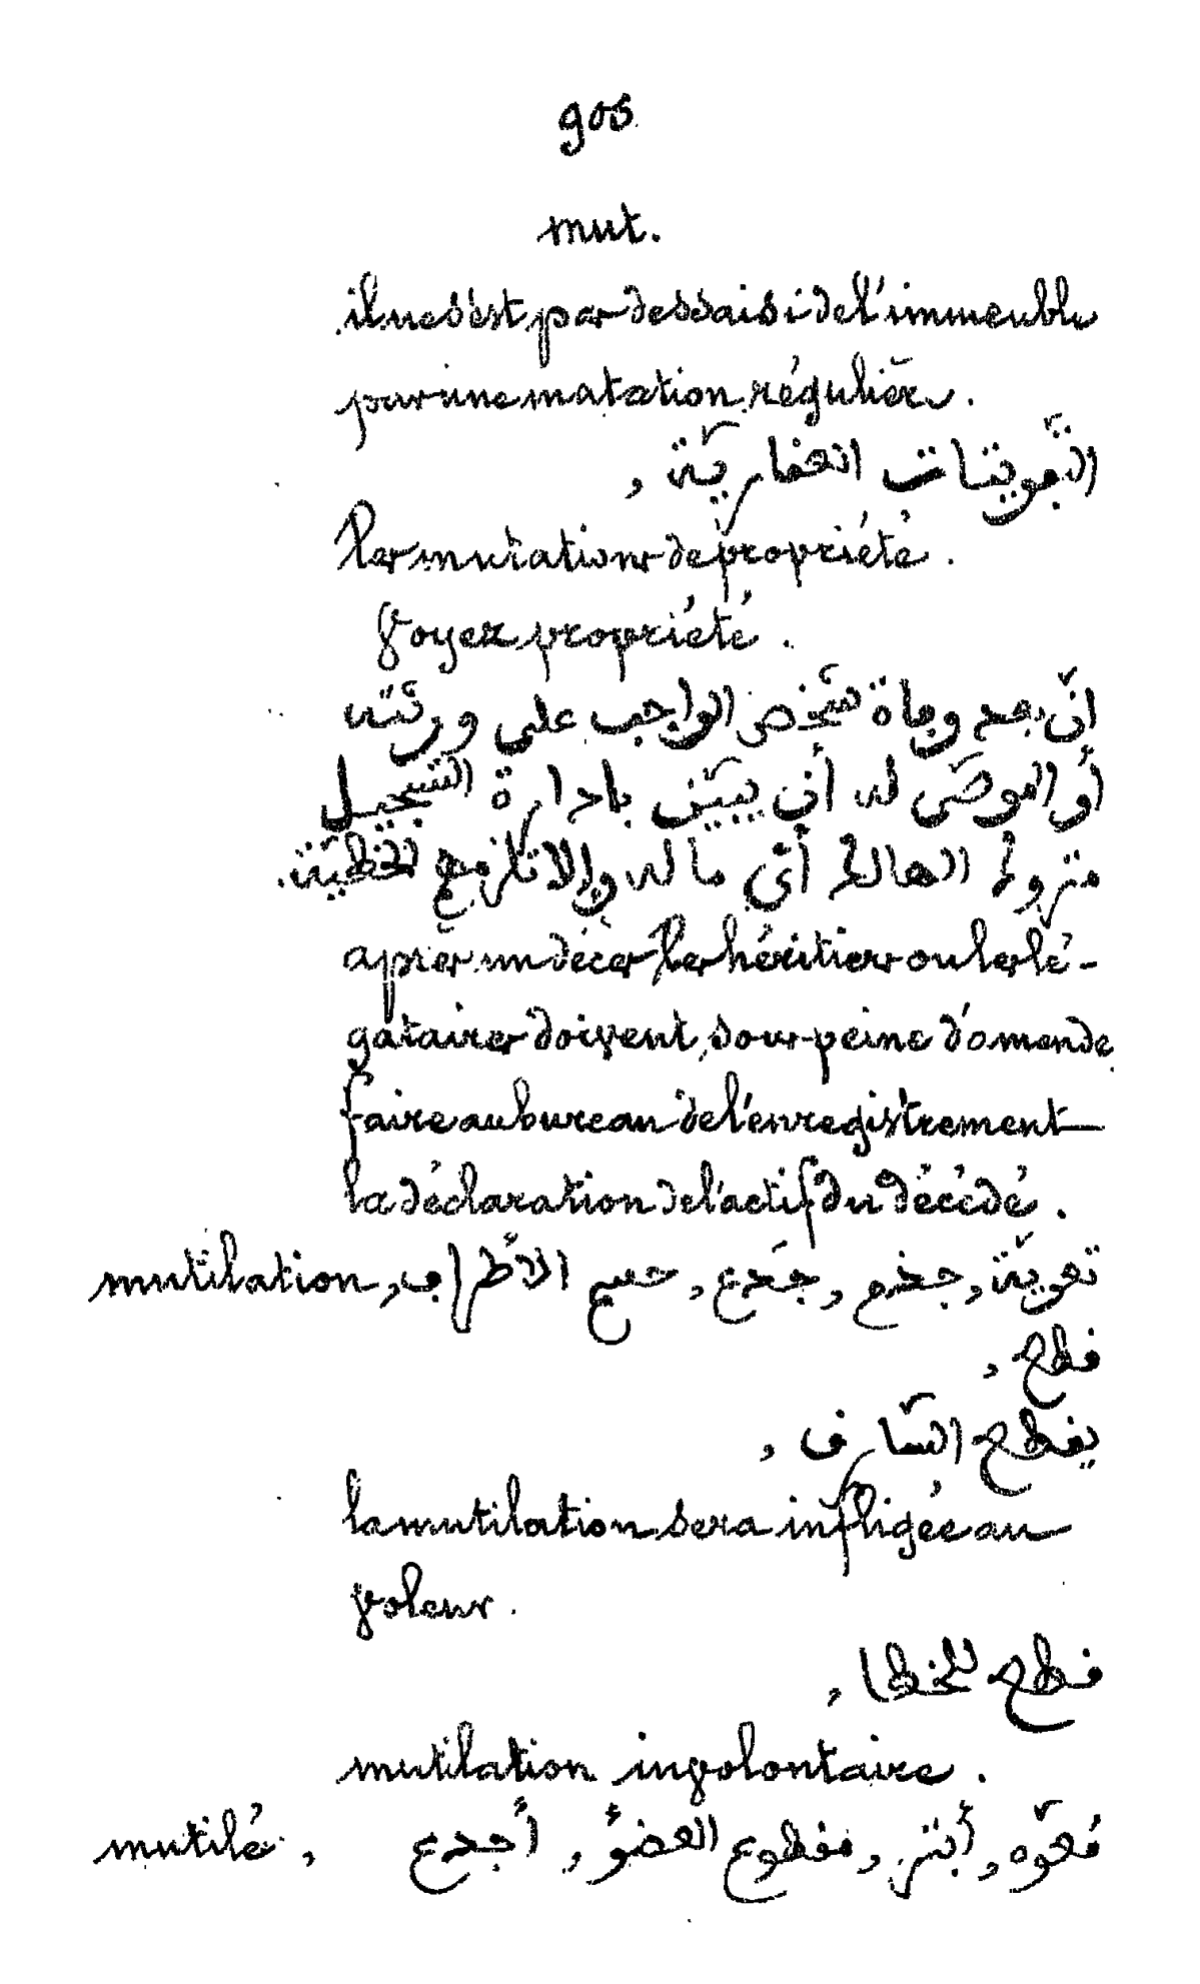 905
mut.
il ne s'est pas dessaisi de l'immeuble
par une matation régulière.
التّعويتات العفاريّة ,
les mutations de propriété.
Voyez propriété.
انّ بعد وفاة شخص الواجب على ورثته
أو الموصَى له أن يبيّن بادارة التّسجيل
متروك الهالك أي ما له وإلا تلزمه الخطيّة.
après un décès les héritiers ou les lé-
gataires doivent, sous peine d'amende
faire au bureau de l'enregistrement
la déclaration de l'actif du décédé.
mutilation, تعويّة , جذم , جَدع , حسم الأطراف
فطع ,
يفطع السّارف ,
la mutilation sera infligée au
voleur.
فطع للخطا ,
mutilation involontaire.
mutilé , مُعوّه , أبتر , مفطوع العضوُ , أجدع